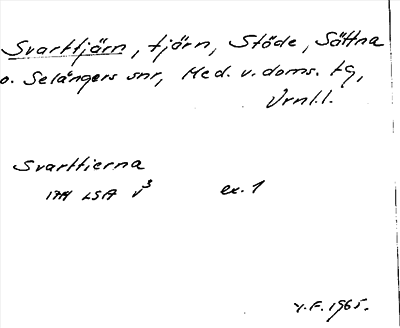 Svarttjärn, tjärn, Stöde, Sättna
o. Selångers snr, Med. v. doms. tg,
Vrnl.l.
Svarttierna
1714 LSA V3 ex. 1
Y.F. 1965.